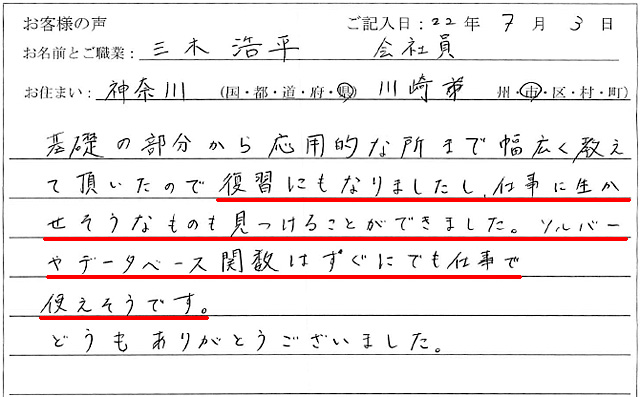 お客様の声 ご記入日：22年 7月 3日
お名前とご職業：三木 浩平 会社員
お住まい：神奈川（国・都・道・府・県）川崎市 州・市・区・村・町）
基礎の部分から応用的な所まで幅広く教え
て頂いたので復習にもなりましたし、仕事に生か
せそうなものも見つけることができました。ソルバー
やデータベース関数はすぐにでも仕事で
使えそうです。
どうもありがとうございました。